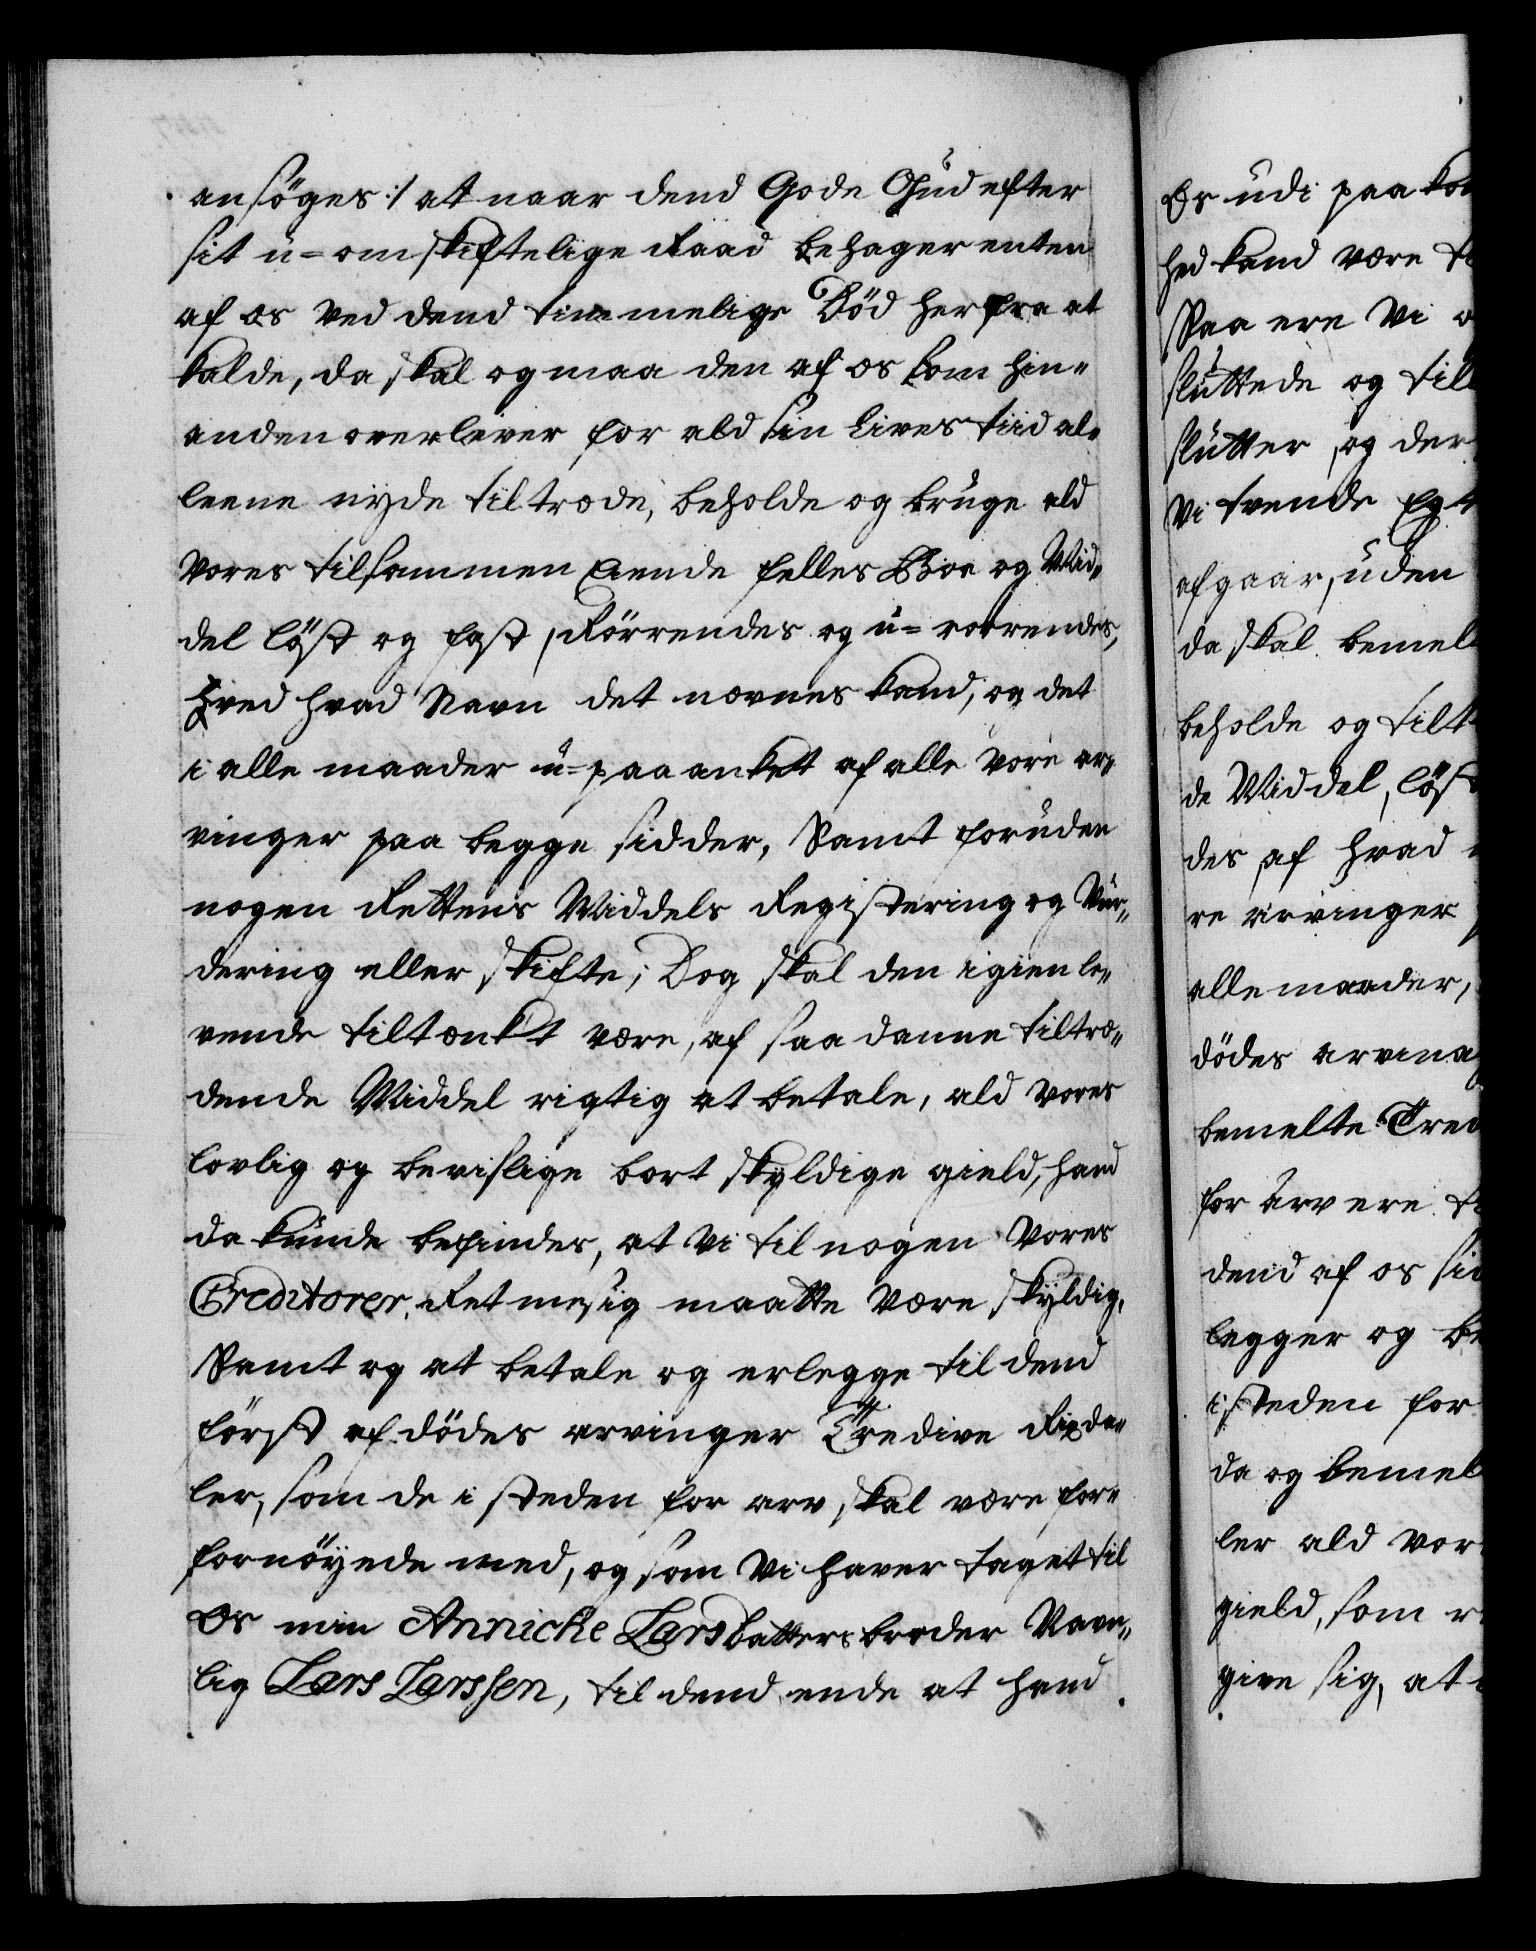 ansöges :/ at naar dend Gode Gud efter
sit u-omskiftelige Raad behager enten
af os ved dend timmelige Död herfra at
kalde, da skal og maa den af os som hin-
anden overlever for ald sin Lives tiid al-
leene nyde tiltræde, beholde og bruge ald
vores tilsammen Eiende felles Boe og Mid-
del löst og fast, Rörrendes og u-rörrendes,
hved hvad Navn det nævnes kand, og det
i alle maader u-paaanket af alle vore ar-
vinger paa begge sidder, Samt foruden
nogen Rettens Middels Registering og Vur-
dering eller skifte; Dog skal den igien le-
vende tiltænkt være, af saadanne tiltræ-
dende Middel rigtig at betale, ald vores
lovlig og bevislige bort skyldige gield, hand
da kunde befindes, at vi til nogen vores
Creditorer, Retmesig maatte være skyldig,
Samt og at betale og erlegge til dend
först afdödes arvinger Tredive Rixda-
ler, som de i steden for arv skal være for-
fornöyede med, og som vi haver taget til
Os min Annicke Larsdatters broder Navn-
lig Lars Larssen, til dend ende at hand
Os udi paa kom
hed kand være
Saa ere vi
sluttede og till
slutter, og der
vi tvende Egt
afgaar, uden
da skal bemel
beholde og tilt
de Middel, löst
des af hvad
re arvinger
alle maader,
dödes arving
bemelte Tred
for arv ere
dend af os
legger og be
isteden for
da og bemel
ler ald vor
gield, som
give sig, at